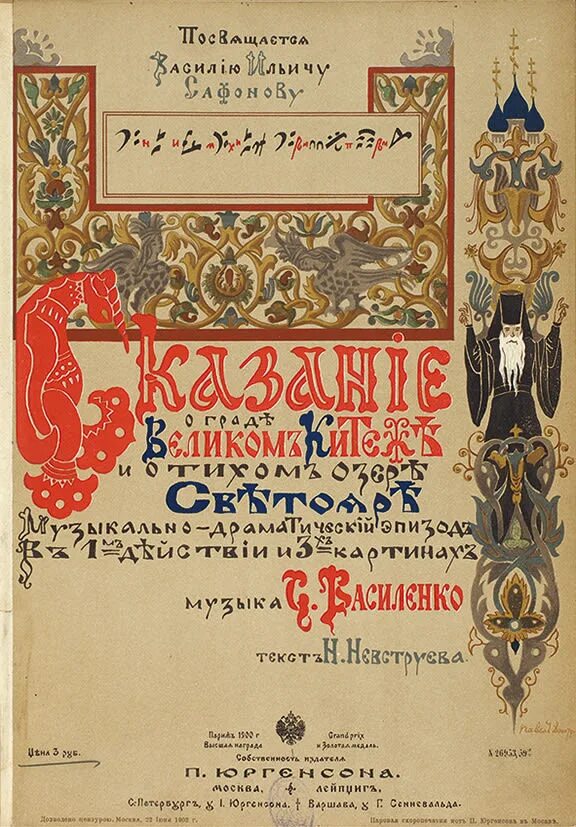 Посвящается
Василію Ильичу
Сафонову
Сказаніе
о градѣ
Великомъ Китежѣ
и о тихомъ озерѣ
Свѣтоярѣ
Музыкально-драматическій эпизодъ
въ 1мъ дѣйствіи и 3хъ картинахъ
музыка С. Василенко
текстъ Н. Невструева.
Парижъ 1900 г Grand prix
Высшая награда и Золотая медаль.
Цѣна 3 руб.
Собственность издателя
П. ЮРГЕНСОНА.
МОСКВА, ЛЕЙПЦИГЪ.
С.-Петербургъ, у І. Юргенсона. Варшава, у Г. Сенневальда.
Дозволено цензурою. Москва, 22 Іюня 1902 г. Паровая скоропечатня нотъ П. Юргенсона въ Москвѣ.